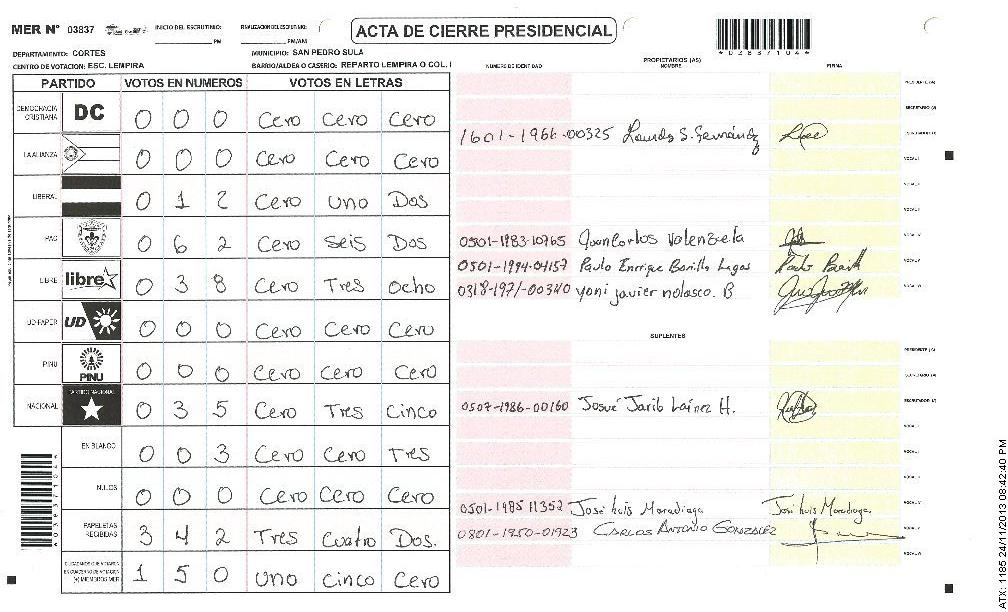 MER Nº 03837 INICIO DEL ESCRUTINIO: PM FINALIZACION DEL ESCRUTINIO: PM/AM
ACTA DE CIERRE PRESIDENCIAL
*03837104*
DEPARTAMENTO: CORTES MUNICIPIO: SAN PEDRO SULA
CENTRO DE VOTACION: ESC. LEMPIRA BARRIO/ALDEA O CASERIO: REPARTO LEMPIRA O COL. I
PARTIDO VOTOS EN NUMEROS VOTOS EN LETRAS
DEMOCRACIA CRISTIANA DC 0 0 0 Cero Cero Cero
LA ALIANZA 0 0 0 Cero Cero Cero
LIBERAL 0 1 2 Cero Uno Dos
PAC 0 6 2 Cero Seis Dos
LIBRE libre 0 3 8 Cero Tres Ocho
UD-FAPER UD 0 0 0 Cero Cero Cero
PINU PINU 0 0 0 Cero Cero Cero
NACIONAL PARTIDO NACIONAL 0 3 5 Cero Tres Cinco
EN BLANCO 0 0 3 Cero Cero Tres
NULOS 0 0 0 Cero Cero Cero
PAPELETAS RECIBIDAS 3 4 2 Tres Cuatro Dos.
CIUDADANOS QUE VOTARON EN CUADERNO DE VOTACION (+) MIEMBROS MER 1 5 0 Uno Cinco Cero
PROPIETARIOS (AS)
NUMERO DE IDENTIDAD NOMBRE FIRMA
PRESIDENTE (A)
SECRETARIO (A)
1601-1966-00325 Lourdes S. Fernández ESCRUTADOR (A)
VOCAL I
VOCAL II
VOCAL III
0501-1983-10765 Juan Carlos Valenzuela VOCAL IV
0501-1994-04157 Paulo Enrrique Bonilla Lagos VOCAL V
0318-1971-00340 Yoni javier nolasco. B VOCAL VI
SUPLENTES
PRESIDENTE (A)
SECRETARIO (A)
0507-1986-00160 Josué Jarib Laínez H. ESCRUTADOR (A)
VOCAL I
VOCAL II
VOCAL III
0501-1985 11352 José Luis Maradiaga José Luis Maradiaga. VOCAL IV
0801-1950-01923 CARLOS ANTONIO GONZALEZ VOCAL V
VOCAL VI
ATX: 1185 24/11/2013 08:42:40 PM